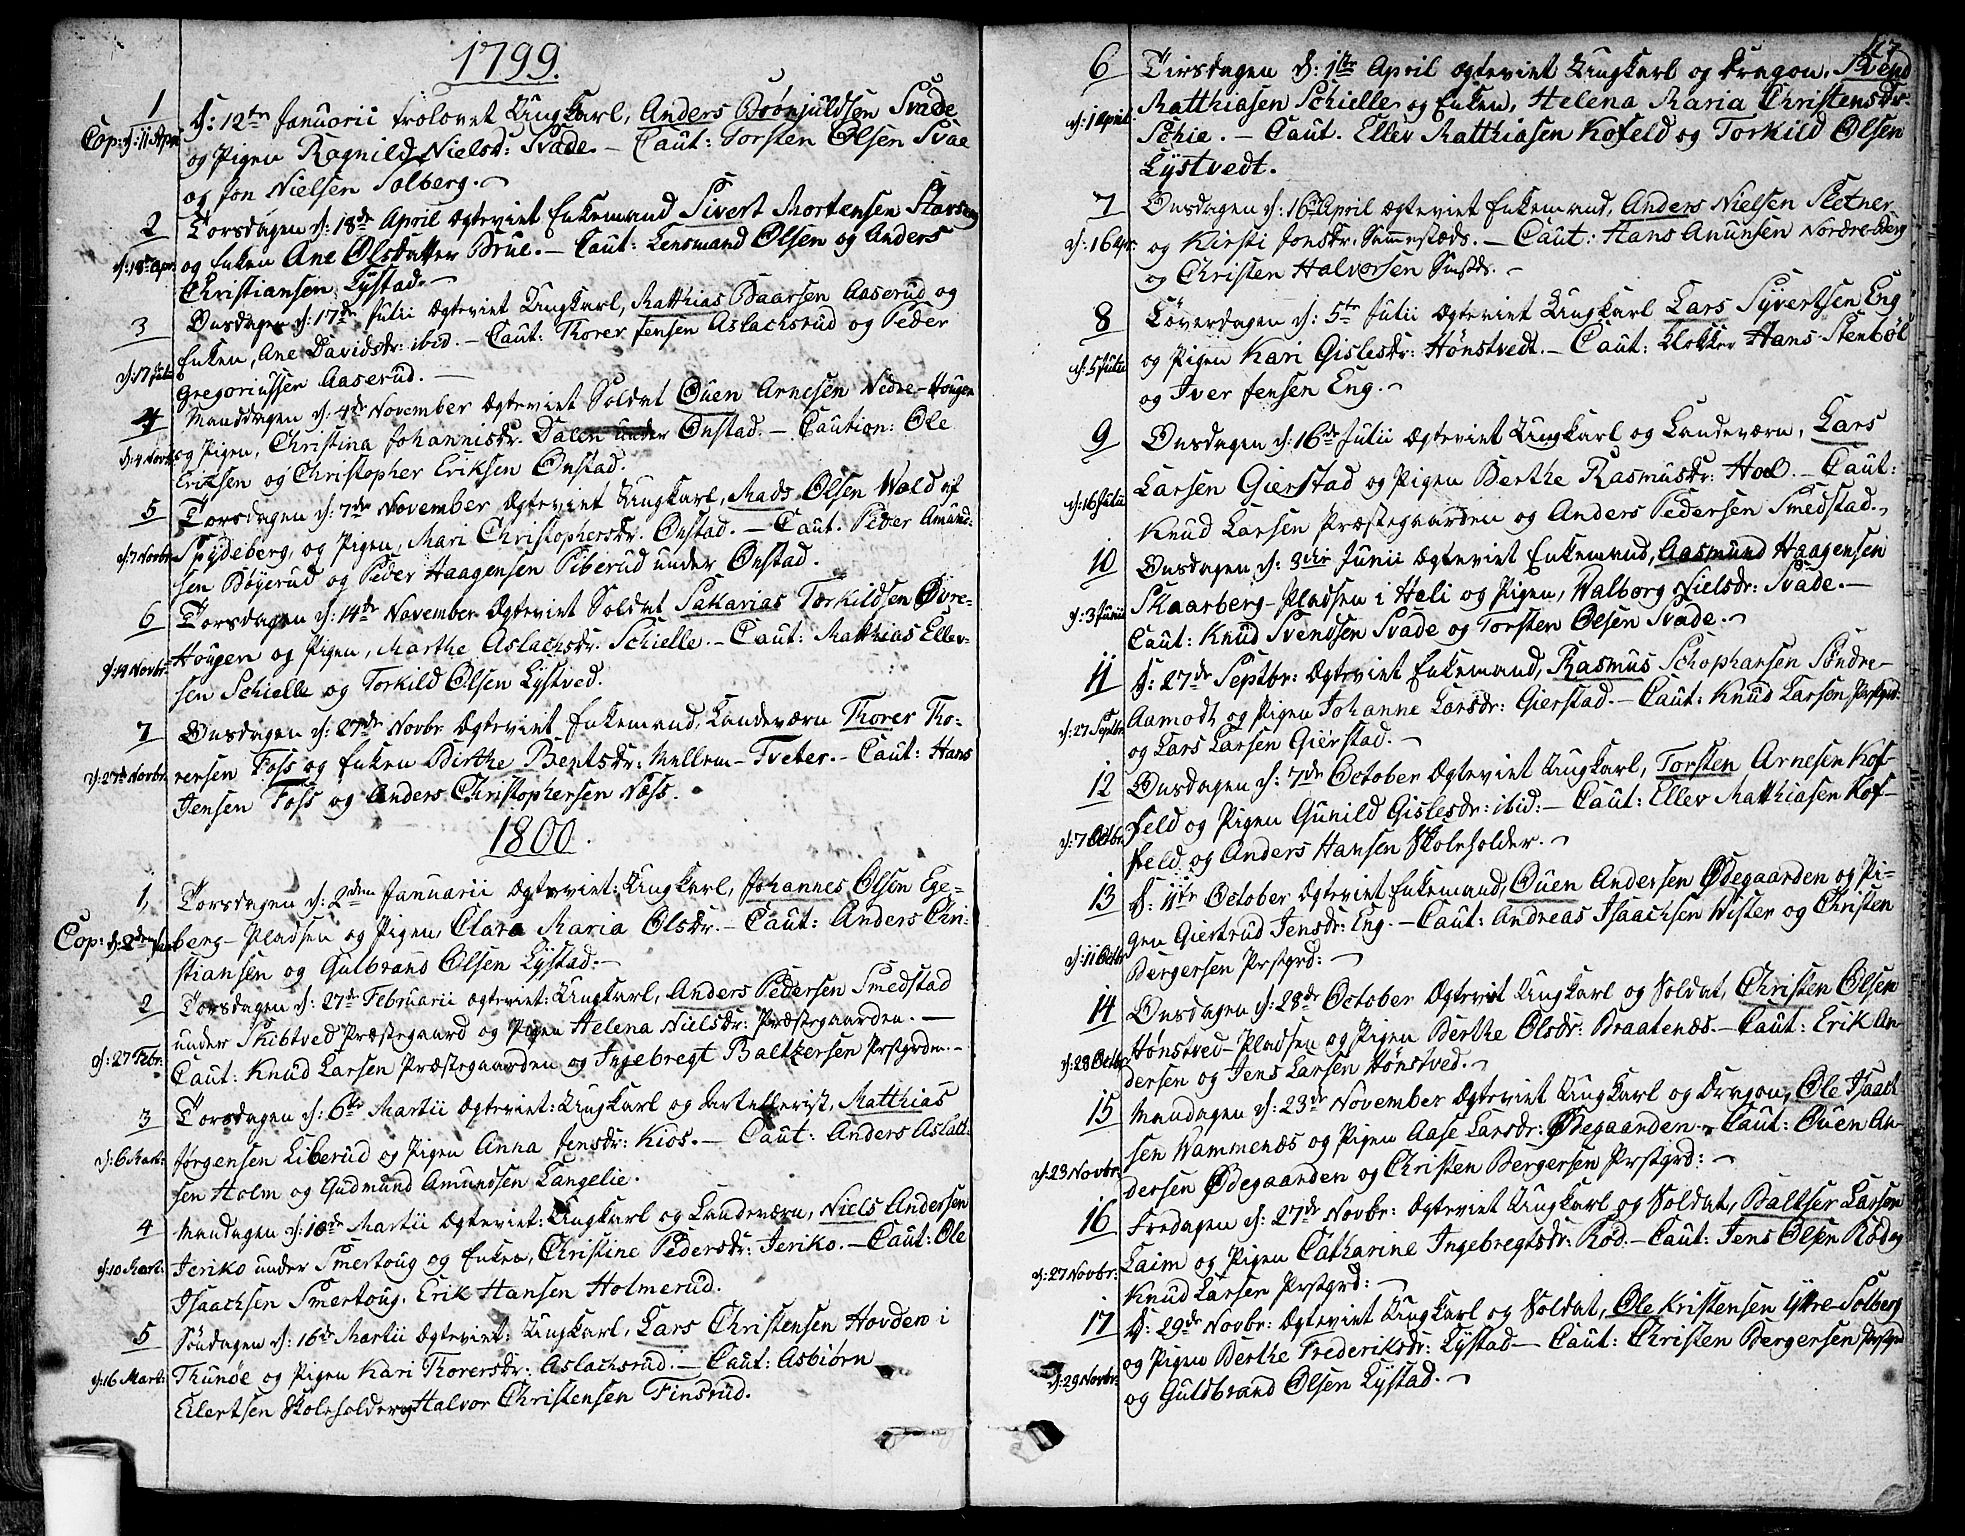 1799.
1 D: 12te Januarii trolovet Ungkarl, Anders Börnjuldsen Svade
Cop: d: 11 Apr. og Pigen Ragnild Nielsd: Svade. – Caut: Torsten Olsen Svae
og Jon Nielsen Solberg.
2 Torsdagen d: 18de April Ægteviet Enkemand Sivert Mortensen
d: 18 Apr. og Enken Ane Olsdatter Brue. – Caut: Lensmand Olsen og Anders
Christiansen Lystad.
3 Onsdagen d: 17de Julii Ægteviet Ungkarl, Matthias Baarsen Aaserud og
d: 17 Juli Enken, Ane Davidsdr: ibid. – Caut: Thorer Jensen Aslachsrud og Peder
Gregoriussen Aaserud. –
4 Manddagen d: 4de November Ægteviet Soldat Ouen Arnesen Nedre-Hougen
d: 4 Novbr og Pigen, Christina Johannisdr. Dalen under Onstad. – Caution: Ole
Eriksen og Christopher Eriksen Onstad.
5 Torsdagen d: 7de November Ægteviet Ungkarl, Mads Olsen Wold af
d: 7 Novbr. Spydeberg, og Pigen, Mari Christophersdr. Onstad. – Caut: Peder Amund-
sen Böyerud og Peder Haagensen Piberud under Onstad.
6 Torsdagen d: 14de November Ægteviet Soldat Sakarias Torkildsen Øvre-
d: 14 Novbr. Hougen og Pigen, Marthe Aslachsdr. Schielle. – Caut: Matthias Ellev-
sen Schielle og Torkild Olsen Lystved.
7 Onsdagen d: 27de Novbr Ægteviet Enkemand, Landeværn Thorer Tho-
d: 27de Novbr. rersen Foss og Enken Birthe Bentsdr: Mellem-Tveter. – Caut: Hans
Jensen Foss og Anders Christophersen Næss.
1800.
1, Torsdagen d: 2den Januarii Ægteviet: Ungkarl, Johannes Olsen Ege-
Cop: d: 2den Jan berg-Pladsen og Pigen, Clara Maria Olsdr. – Caut: Anders Chri-
stiansen og Gulbrand Olsen Lystad. –
2 Torsdagen d: 27de Februarii ægteviet: Ungkarl, Anders Pedersen Smedstad
under Skibtved Præstegaard og Pigen Helena Nielsdr: Præstegaarden. –
d: 27 Febr: Caut: Knud Larsen Præstegaarden og Ingebregt Baltzersen Prstgrdn. –
3 Torsdagen d: 6te Martii Ægteviet: Ungkarl og Artellerist, Matthias
d: 6 Mart: Jørgensen Liberud og Pigen Anna Jensdr: Kios. – Caut: Anders Aslak-
sen Holm og Gudmund Amundsen Langelie.
4 Mandagen d: 10de Martii Ægteviet: Ungkarl og Landeværn, Niels Andersen
d: 10 Mart: Jeriko under Smertoug og Enken, Christine Pedersdr: Jeriko. – Caut: Ole
Isaachsen Smertoug. Erik Hansen Holmerud.
5 Söndagen d: 16de Martii Ægteviet: Ungkarl, Lars Christensen Hovden i
d: 16 Mart: Thunøe og Pigen Kari Thorersdr: Aslachsrud. – Caut: Asbiørn
Eilertsen Skoleholder og Halvor Christensen Finsrud.
47
6 Tirsdagen d: 1ste April Ægteviet Ungkarl og Dragon,
d: 1 April. Matthiasen Schielle og Enken, Helena Maria Christensdr.
Schie. – Caut. Ellev Matthiasen Kofeld og Torkild Olsen
Lystvedt.
7 Onsdagen d: 16de April Ægteviet Enkemand, Anders Nielsen Sletner
d: 16 Apr. og Kirsti Jonsdr. Sammestæds. – Caut: Hans Anunsen Nordre-Berg
og Christen Halvorsen
8 Løverdagen d: 5te Julii Ægteviet Ungkarl Lars Syvertsen Eng
d: 5 Julii og Pigen Kari Gislesdr: Hönstvedt. – Caut: Klokker Hans Stenböl
og Iver Jensen Eng.
9 Onsdagen d: 16de Julii Ægteviet Ungkarl og Landeværn, Lars
d: 16 Julii Larsen Gierstad og Pigen Berthe Rasmusdr: Hoel. – Caut:
Knud Larsen Præstegaarden og Anders Pedersen Smedstad.
10 Onsdagen d: 3die Junii Ægteviet Enkemand, Aasmund Haagensen
d: 3 Junii Skaarberg-Pladsen i Heli og Pigen, Walborg Nielsdr: Svade. –
Caut: Knud Svendsen Svade og Torsten Olsen Svade.
11 D: 27de Septbr: Ægteviet Enkemand, Rasmus Schophansen Søndre-
d: 27 Septbr Aamodt og Pigen Johanne Larsdr: Gierstad. – Caut: Knud Larsen Prstgrd:
og Lars Larsen Gierstad. –
12 Onsdagen d: 7de October Ægteviet Ungkarl, Torsten Arnesen Kof-
d: 7 Octbr. feld og Pigen Gunild Gislesdr: ibid: – Caut: Ellev Matthiasen Kof-
feld og Anders Hansen Skoleholder.
13 D: 11te October Ægteviet Enkemand, Ouen Andersen Ødegaarden og Pi-
d: 11 Octbr gen Giertrud Jensdr: Eng. – Caut: Andreas Isaachsen Wister og Christen
Bergersen Prstgrd: –
14 Onsdagen d: 28de October Ægteviet Ungkarl og Soldat, Christen Olsen
d: 28 Octbr Hönstved-Pladsen og Pigen Berthe Olsdr: Braatenæs. – Caut: Erik An-
dersen og Jens Larsen Hönstved.
15 Mandagen d: 23de November Ægteviet Ungkarl og Dragon, Ole Isaach-
d: 23 Novbr. sen Wammenæs og Pigen Aase Larsdr: Ødegaarden. – Caut: Ouen An-
dersen Ødegaarden og Christen Bergersen Prstgrd: –
16 Fredagen d: 27de Novbr: Ægteviet Ungkarl og Soldat, Baltser Larsen
d: 27 Novbr: Laim og Pigen Catharine Ingebregtsdr: Röd. – Caut: Jens Olsen Röd og
Knud Larsen Prstgrd: –
17 D: 29de Novbr: Ægteviet Ungkarl og Soldat, Ole Kristensen Yttre-Solberg
d: 29 Novbr: og Pigen Berthe Frederiksdr: Lystad – Caut: Christen Bergersen Prstgrd
og Guldbrand Olsen Lystad.